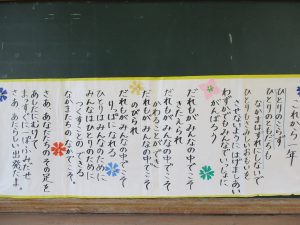 これから一年
ひとりもくらす
ひとりのともだち
なかまはずれにしないで
ひとりもさみしいおもいを
させないように はげましあい
わすれずみんないっしょに
がんばろう
だれもが みんなの中でこそ
きたえられ
だれもが みんなの中でこそ
かわることができ
だれもが みんなの中でこそ
のびられ
だれもが みんなの中でこそ
りっぱになれる
ひとりはみんなのために
みんなはひとりのために
つくすことのできる
なかまたちの なかでこそ。
さあ、あなたたちの その足を
あしたにむけて
まっすぐに一歩ふみだせ
さあ、あたらしい出発だよ。